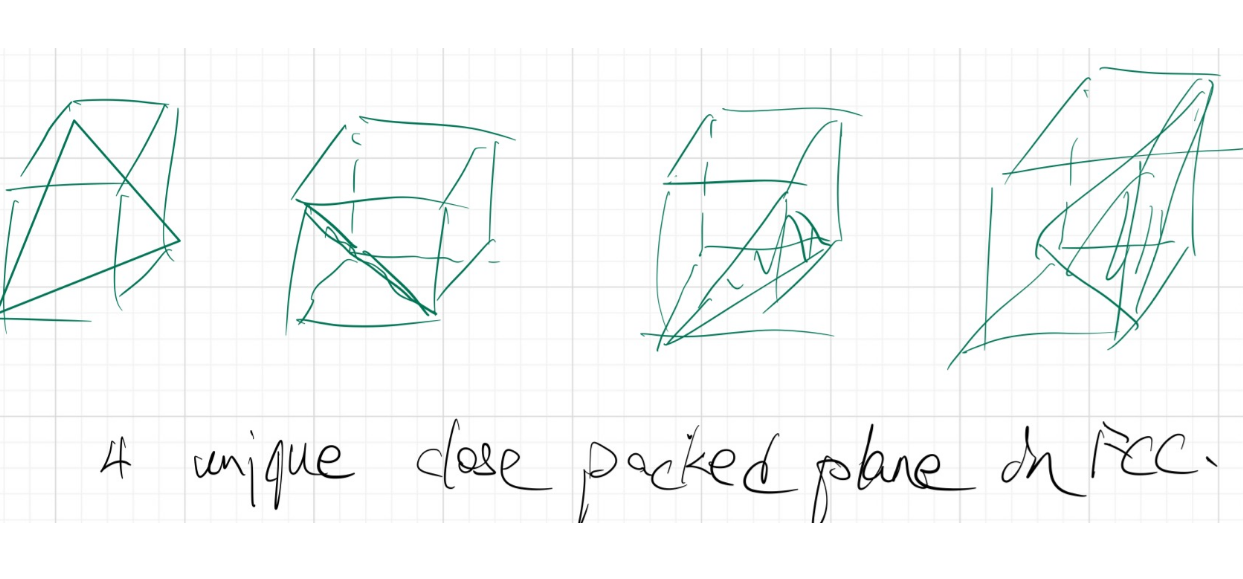 4 unique close packed plane in FCC.